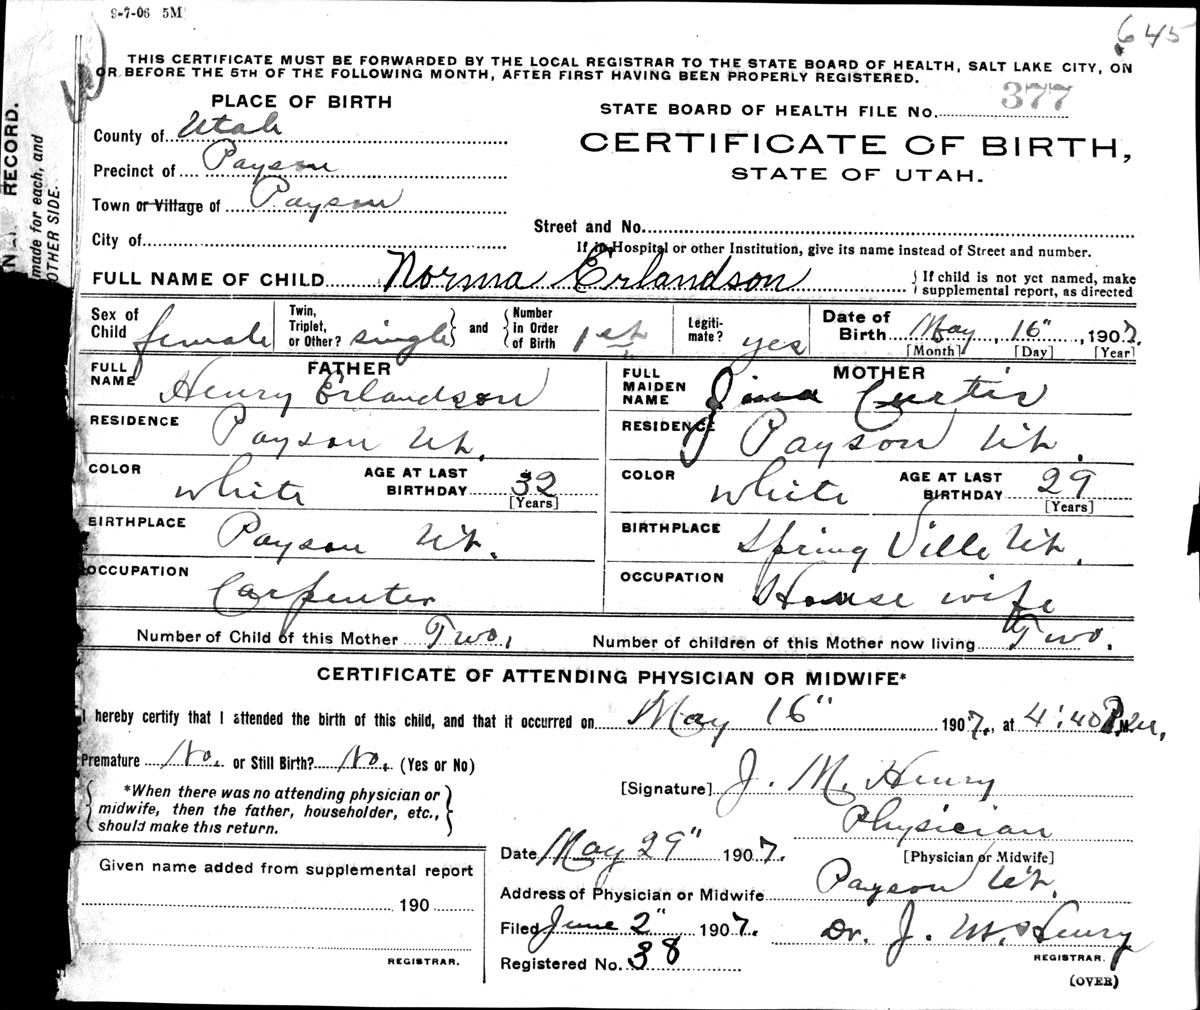 9-7-06 5M
645
THIS CERTIFICATE MUST BE FORWARDED BY THE LOCAL REGISTRAR TO THE STATE BOARD OF HEALTH, SALT LAKE CITY, ON
OR BEFORE THE 5TH OF THE FOLLOWING MONTH, AFTER FIRST HAVING BEEN PROPERLY REGISTERED.
RECORD.
made for each, and
OTHER SIDE.
PLACE OF BIRTH
STATE BOARD OF HEALTH FILE No. 377
County of Utah
CERTIFICATE OF BIRTH,
Precinct of Payson
STATE OF UTAH.
Town or Village of Payson
Street and No.
City of
If in Hospital or other Institution, give its name instead of Street and number.
FULL NAME OF CHILD Norma Erlandson { If child is not yet named, make supplemental report, as directed
Sex of Child female Twin, Triplet, or Other? single } and { Number in Order of Birth 1st Legiti-mate? yes Date of Birth May 16", 1907.
[Month] [Day] [Year]
FATHER
MOTHER
FULL NAME Henry Erlandson
FULL MAIDEN NAME Curtis
RESIDENCE Payson Ut.
RESIDENCE Payson Ut.
COLOR white AGE AT LAST BIRTHDAY 32 [Years]
COLOR white AGE AT LAST BIRTHDAY 29 [Years]
BIRTHPLACE Payson Ut.
BIRTHPLACE Spring Ville Ut.
OCCUPATION Carpenter
OCCUPATION House wife
Number of Child of this Mother Two, Number of children of this Mother now living Two.
CERTIFICATE OF ATTENDING PHYSICIAN OR MIDWIFE*
I hereby certify that I attended the birth of this child, and that it occurred on May 16" 1907., at 4:40 P.M.
Premature No. or Still Birth? No. (Yes or No)
{ *When there was no attending physician or midwife, then the father, householder, etc., should make this return. }
[Signature] J. M. Henry
Physician
[Physician or Midwife]
Date May 29" 1907.
Given name added from supplemental report
190
REGISTRAR.
Address of Physician or Midwife Payson Ut.
Filed June 2" 1907. Dr. J. M. Henry
REGISTRAR.
Registered No. 38
(OVER)